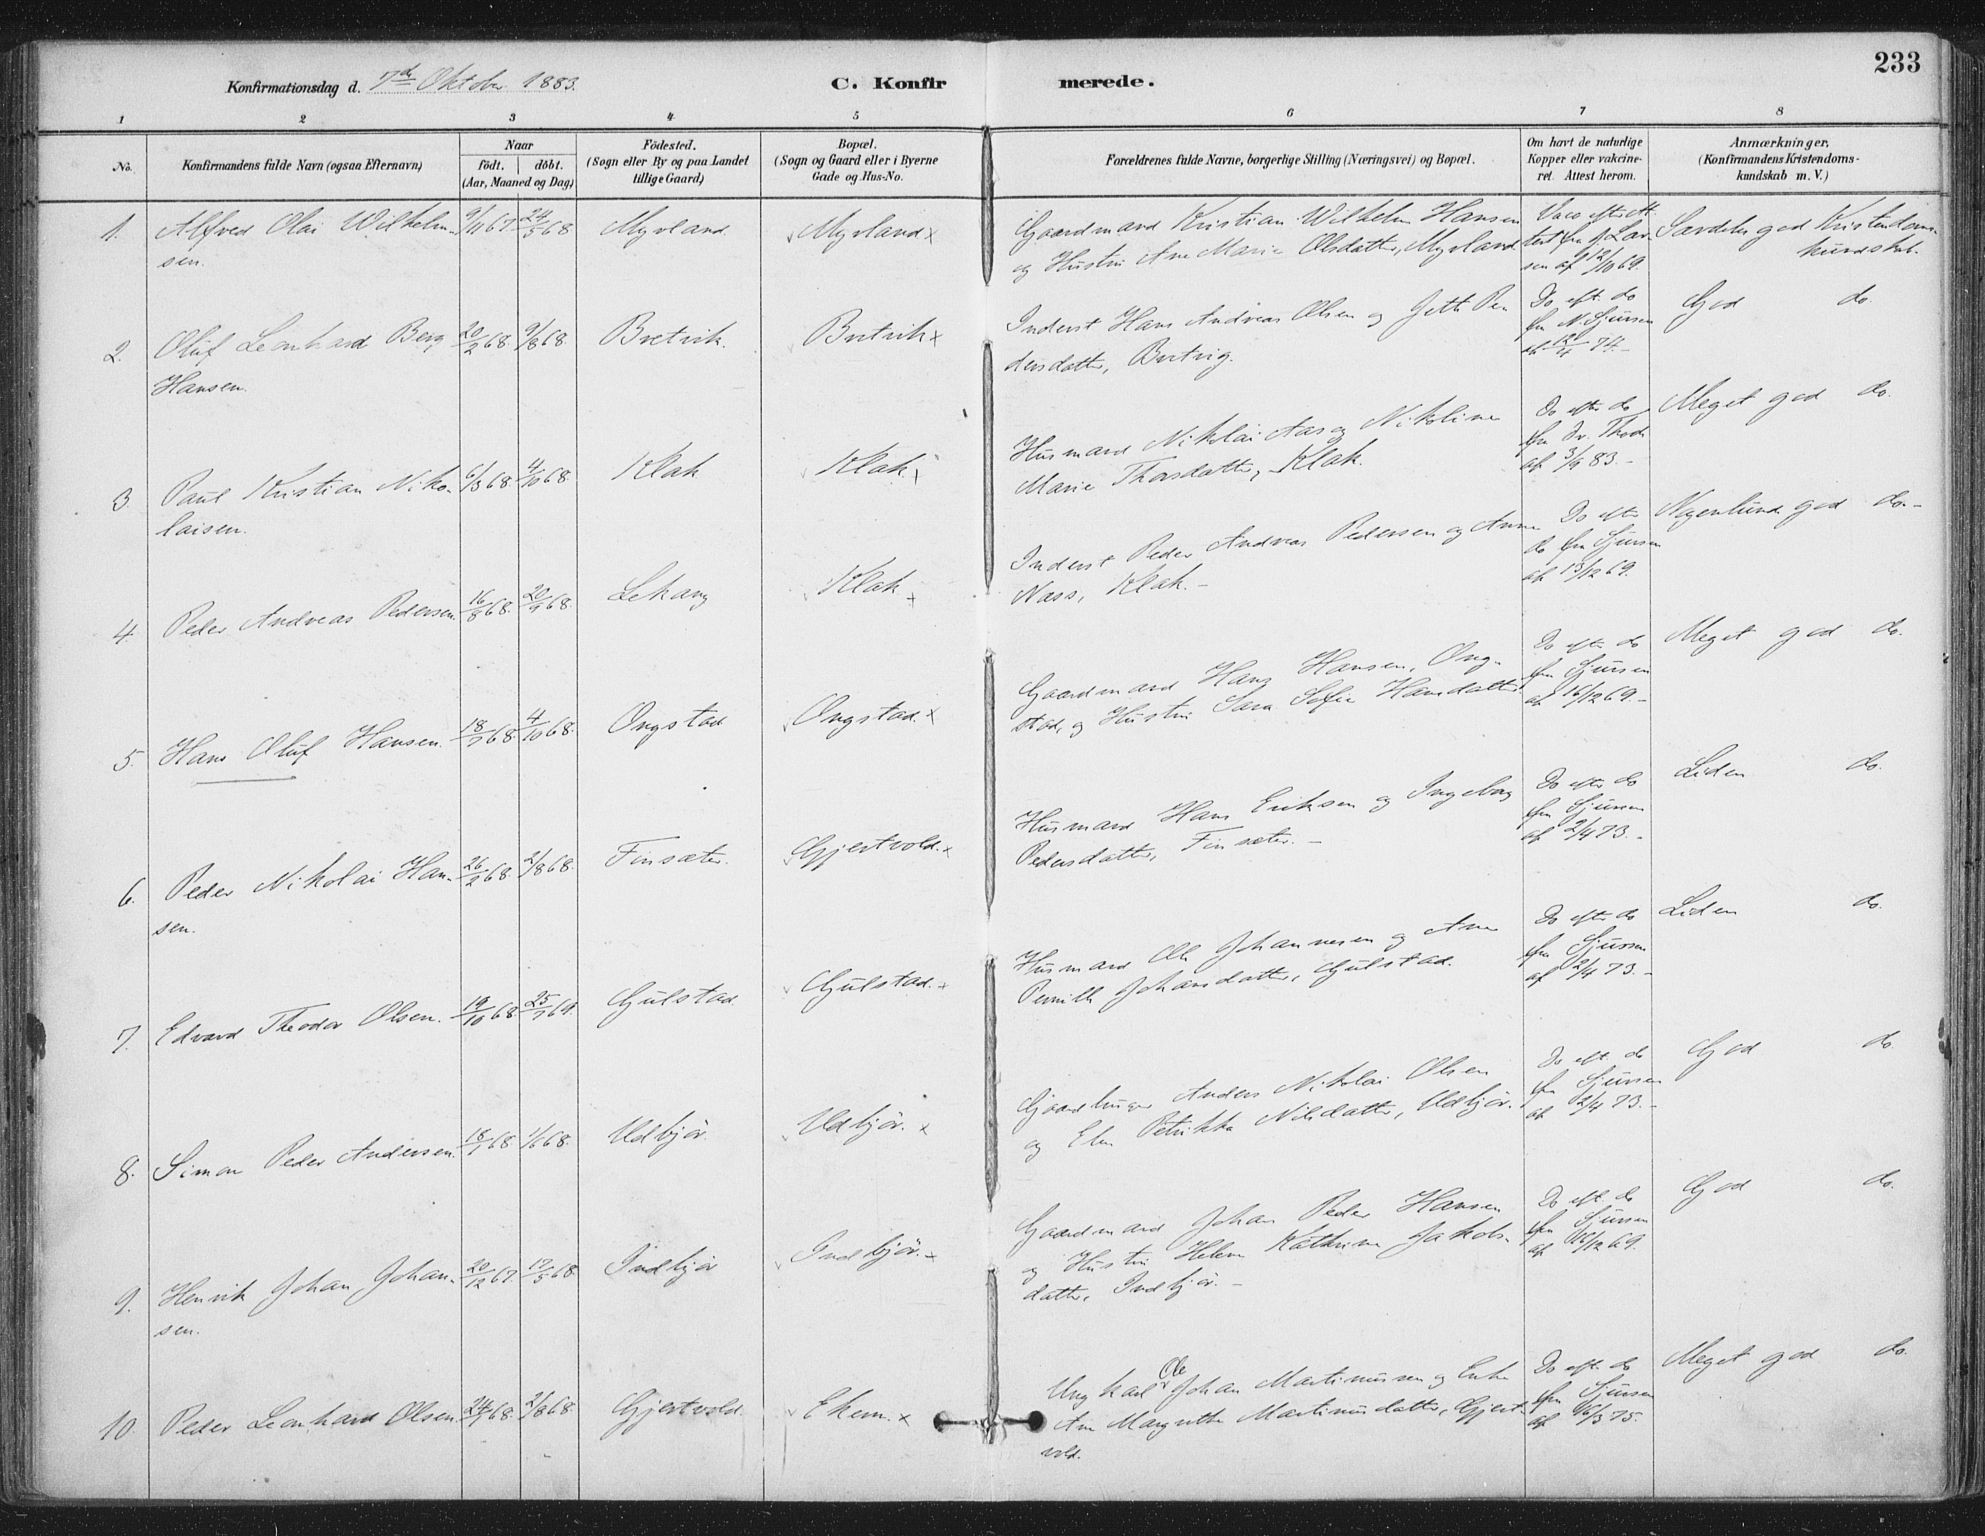 233
Konfirmationsdag d. 7de Oktober 1883.
C. Konfirmerede.
1 2 3 4 5 6 7 8
No.
Konfirmandens fulde Navn (ogsaa Efternavn)
Naar
födt. döbt.
(Aar, Maaned og Dag)
Födested.
(Sogn eller By og paa Landet
tillige Gaard)
Bopæl.
(Sogn og Gaard eller i Byerne
Gade og Hus-No.
Forældrenes fulde Navne, borgerlige Stilling (Næringsvei) og Bopæl.
Om havt de naturlige
Kopper eller vakcine-
ret. Attest herom.
Anmærkninger,
(Konfirmandens Kristendoms-
kundskab m. V.)
1. Alfred Olai Wilhelm-
sen.
9/11 67 24/5 68 Myrland Myrland x
Gaardmand Kristian Wilhelm Hansen
og Hustru Ane Marie Olsdatter, Myrland
Vacc efter At-
test fra J. Lar-
sen af 12/10 69.
Særdeles god Kristendoms-
kundskab.
2. Oluf Leonhard Berg
Hansen.
20/2 68 9/8 68 Bretvik. Bretvik x
Inderst Hans Andreas Olsen og Jette Pe-
dersdatter, Bretvig.
Do eft. do
fra N. Sjursen
af 12/4 74.-
God do.
3. Paul Kristian Niko-
laisen.
6/3 68. 4/10 68. Klak Klak x
Husmand Nikolai Aas og Nikoline
Marie Thorsdatter, Klak.
Do efter do
fra Dr. Thode
af 3/9 83.-
Meget god do.
4. Peder Andreas Pedersen.
16/8 68. 20/9 68. Lekang Klak x
Inderst Peder Andreas Pedersen og Anne
Næss, Klak.-
Do efter
do fra Sjursen
af 13/12 69.
Nogenlunde god do.-
5. Hans Oluf Hansen.
18/7 68. 4/10 68. Ongstad Ongstad. x
Gaardmand Hans Hansen, Ong-
stad, og Hustru Sara Sofie Hansdatter
Do efter do
fra Sjursen
af 16/12 69.-
Meget god do.
6. Peder Nikolai Han-
sen.
26/2 68. 2/8 68. Finsæter. Gjertvold. x
Husmand Hans Eriksen og Ingeborg
Pedersdatter, Finsæter.-
Do efter do
fra Sjursen
af 2/4 73.-
Liden do.
7. Edvard Theodor Olsen.
19/10 68 25/7 69. Gulstad Gulstad. x
Husmand Ole Johannesen og Ane
Pernille Johansdatter, Gulstad.
Do efter do
fra Sjursen
af 2/4 73.-
Liden do.
8. Simon Peder Andersen.
18/1 68 1/6 68. Udbjör. Udbjör. x
Gaardbruger Anders Nikolai Olsen
og Elen Petrikka Nilsdatter, Udbjör.
Do eft. do
fra Sjursen
af 2/4 73.-
God do.
9. Henrik Johan Johan-
sen.
20/12 67. 17/5 68. Indbjör Indbjör. x
Gaardmand Johan Peder Hansen
og Hustru Helene Kathrine Jakobs-
datter, Indbjör.-
Do eft. do
fra Sjursen
af 16/12 69.
God do.
10. Peder Leonhard Olsen.
24/7 68. 2/8 68. Gjertvold. Ekern. x
Ungkarl Ole Johan Martinussen og Enke
Ane Margrethe Martinusdatter, Gjert-
vold.
Do eft. do
fra Sjursen
af 16/3 75.
Meget god do.